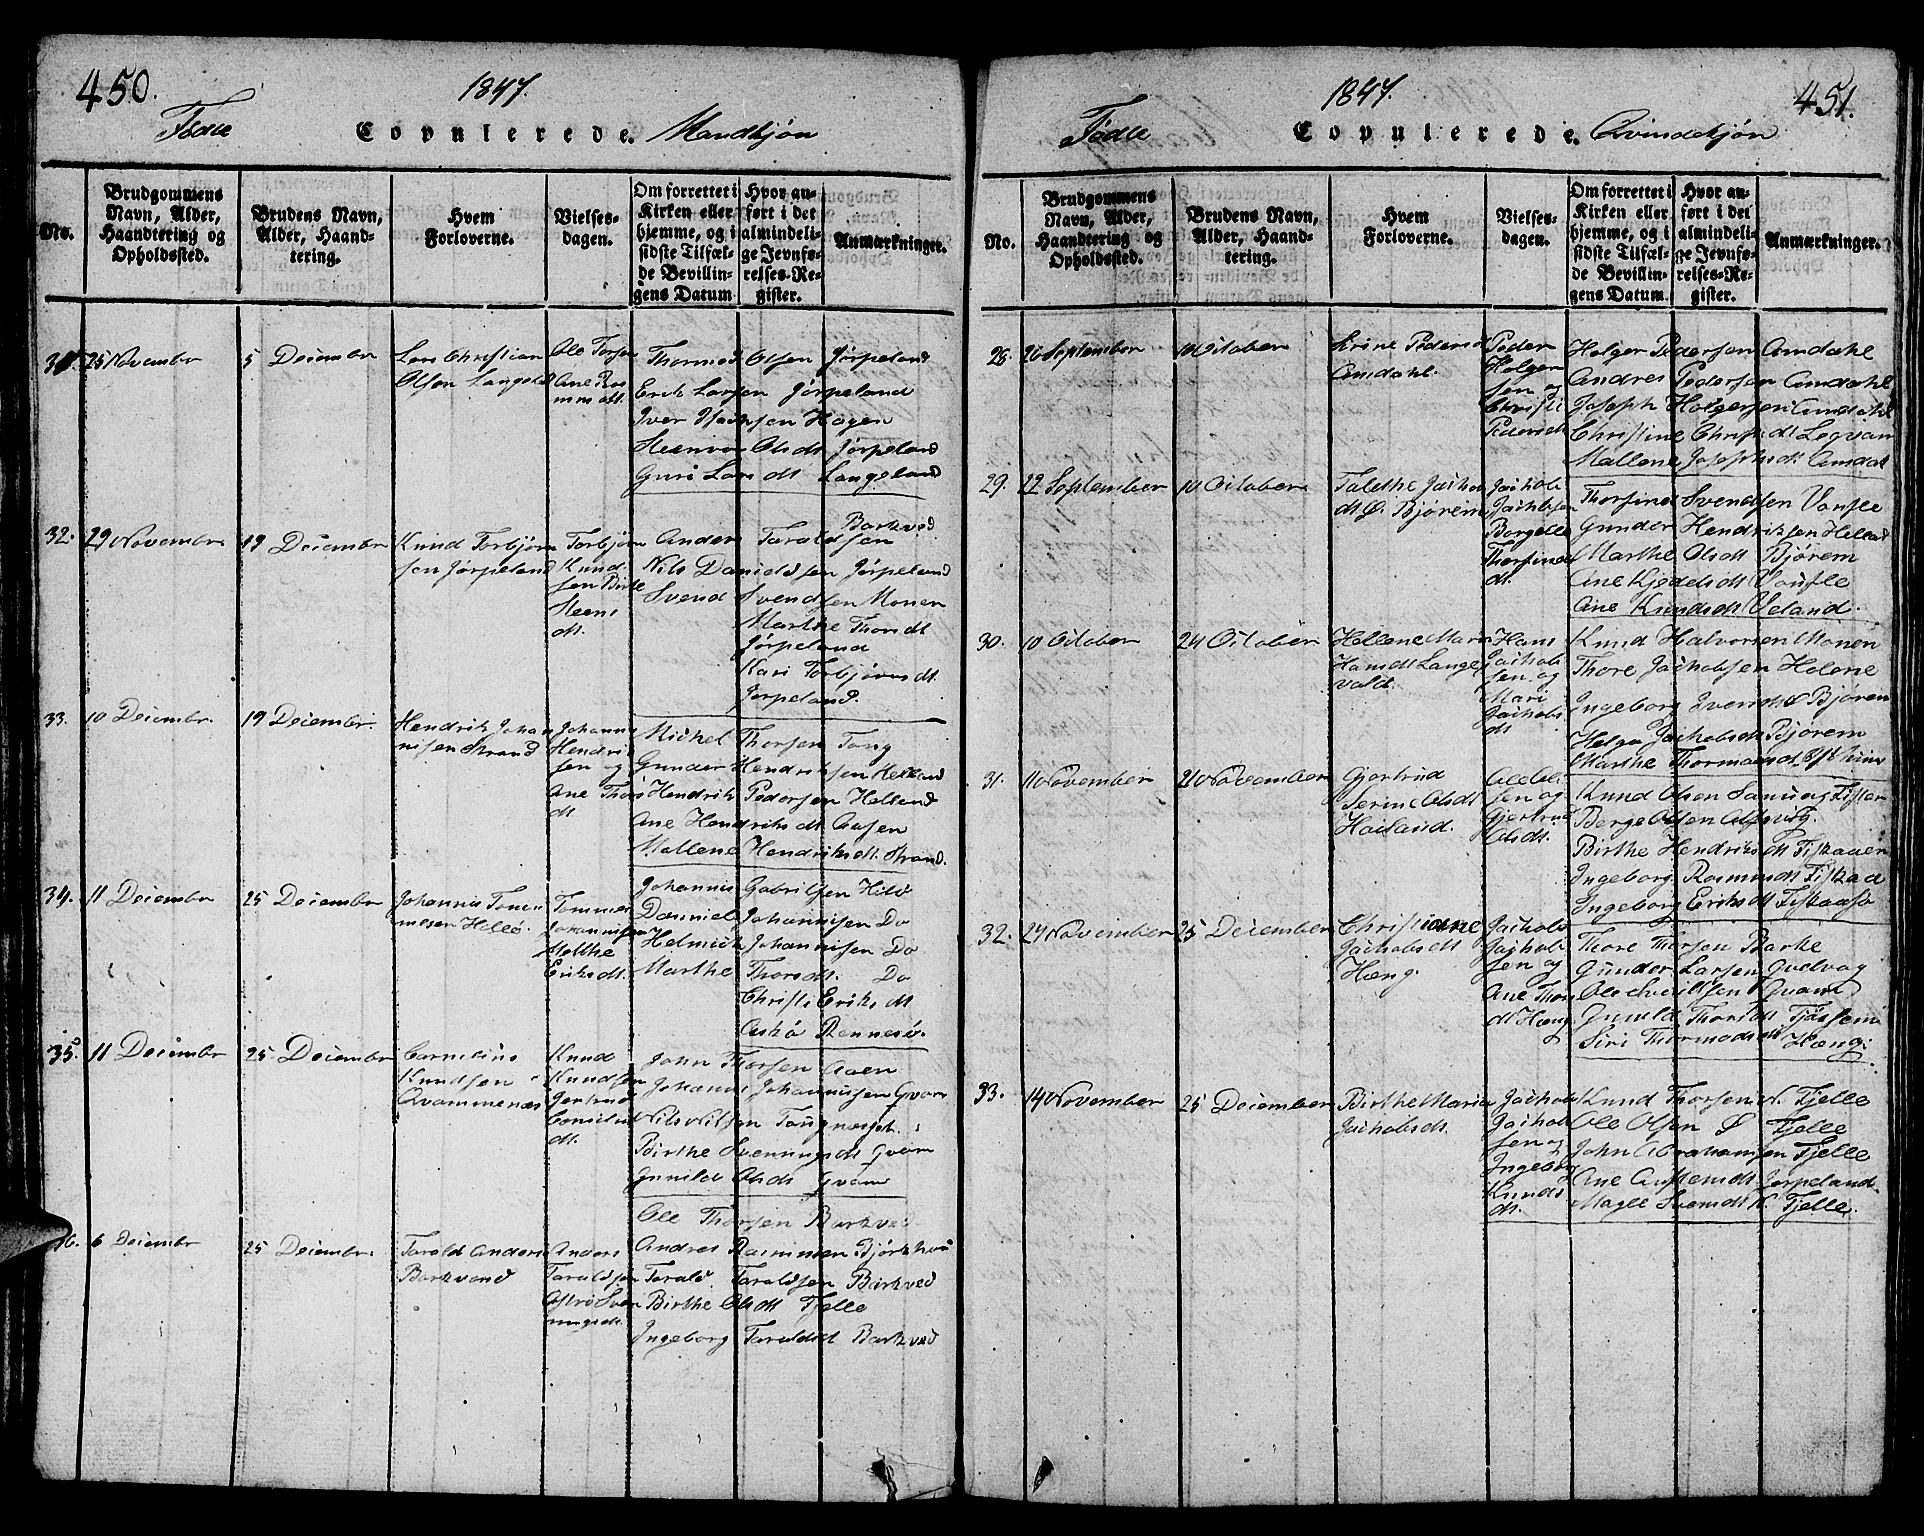 450.
1847.
Fødte Copulerede. Mandkjøn
No.
Brudgommens Navn, Alder, Haandtering og Opholdssted.
Brudens Navn, Alder, Haandtering.
Hvem Forloverne.
Vielsesdagen.
Om forrettet i Kirken eller hjemme, og i sidste Tilfælde Bevillingens Datum
Hvor anført i det almindelige Jevnførelses-Register.
Anmærkninger.
31. 25 November
5 December
Lars Christian
Olsen Langeland
Ole Torsen
Ane Ras
Thormod Olsen Jørpeland
Erik Larsen Jørpeland
Iver Hagen
Olsdt Jørpeland
Guri Larsdt Langeland
32. 29 November
19 December
Knud Torbjørn
sen Jørpeland
Torbjørn
Knud
sen Birte
Steens
dt.
Barkved
Anders Taraldsen
Nils Danielsen Jørpeland
Svend Svendsen Monen
Marthe Thorsdt
Jørpeland
Kari Torbjørnsdt
Jørpeland.
33. 10 December.
19 December.
Hendrik Johan
nisen Strand
Johannis
Hendrik
sen og
Ane Thors
dt
Michel Thorsen Tang
Gunder Hendriksen Helland
Hendrik Pedersen Helland
Ane Hendriksdt Aasen
Mallene Hendriksdt. Strand.
34. 11 December
25 December
Johannis Tom
mesen Helle.
Tommes
Johannisen
Malthe
Eriksdt.
Johannis Gabrilsen Hile
Danniel Johannisen Do
Helmich Johannisen Do
Marthe Thorsdt. Do
Christi Eriksdt
Askø Rennesø.
35. 11 December
25 December
Cornelius
Knudsen
Qvammenæs
Knud
Knudsen
Gertrud
Cornelius
dt.
John Thorsen Aaen
Johannis Johannisen Qvam
Nils Nilsen Tangnæset.
Birthe Svenningsdt Qvam
Gunild Olsdt Qvam
36. 6 December
25 December.
Tarald Anders
Barkved
Anders
Taraldsen
Astri Sven
ningsdt.
Ole Thorsen Barkved
Andres Rasmusen Bjørkhoi
Tarald Taraldsen Barkved
Birthe Olsdt Fjelle
Ingeborg Taraldsdt Barkved
1847.
451.
Fødte Copulerede. Qvindekjøn
No.
Brudgommens Navn, Alder, Haandtering og Opholdssted.
Brudens Navn, Alder, Haandtering.
Hvem Forloverne.
Vielsesdagen.
Om forrettet i Kirken eller hjemme, og i sidste Tilfælde Bevillingens Datum.
Hvor anført i det almindelige Jevnførelses-Register.
Anmærkninger.
28. 26 September
10 October
Sirine Pedersd
Amdahl.
Peder
Holger
sen og
Christi
Pedersdt
Holger Pedersen Amdahl
Andres Pedersen Amdahl
Joseph Holgersen Amdahl
Christine Christ dt
Mallene Josephsdt Amdal
29. 22 September
10 October
Talethe Jacobs
dt Ø. Bjørem
Jachob
Jachobsen
Borgelle
Thorsens
dt.
Thorsine Svendsen
Gunder Hendriksen Helland
Marthe Olsdt Bjørem
Ane Kjedelsdt
Ane Knudsdt Veland.
30. 10 October
24 October
Hellene Mari
Hansdt Lange
vald.
Hans
Jachob
sen og
Mari
Jachobs
dt
Knud Halvorsen Monen
Thore Jachobsen Holene
Ingeborg Bjørem
Helga Jachobsdt Bjørem
Marthe
31. 11 November
21 November
Gjertrud
Serine Olsdt
Hailand.
Ole Ol
sen og
Gjertrud
Olsdt.
Knud Olsen
Berge Olsen
Birthe Hendriksdt Fiskaaen
Ingeborg Rasmusdt Fiskaa
Ingeborg Eriksdt Fiskaasø
32. 27 November
25 December
Christiane
Jachobsdt
Hæng.
Jachob
Jachob
sen og
Ane Thors
dt Hæng
Thore Thorsen Barke
Gunder Larsen Qvelvog
Ole Qvam
Gunild Thorsdt
Siri Thormodsdt Hæng.
33. 14 November
25 December
Birthe Maria
Jachobsdt.
Jachob
Jachob
sen og
Ingeborg
Knuds
dt.
Knud Thorsen N. Fjelle
Ole Olsen Ø Fjelle
John Abrahamsen Fjelle
Ane Austensdt Jørpeland.
Magle Svensdt N. Fjelle.